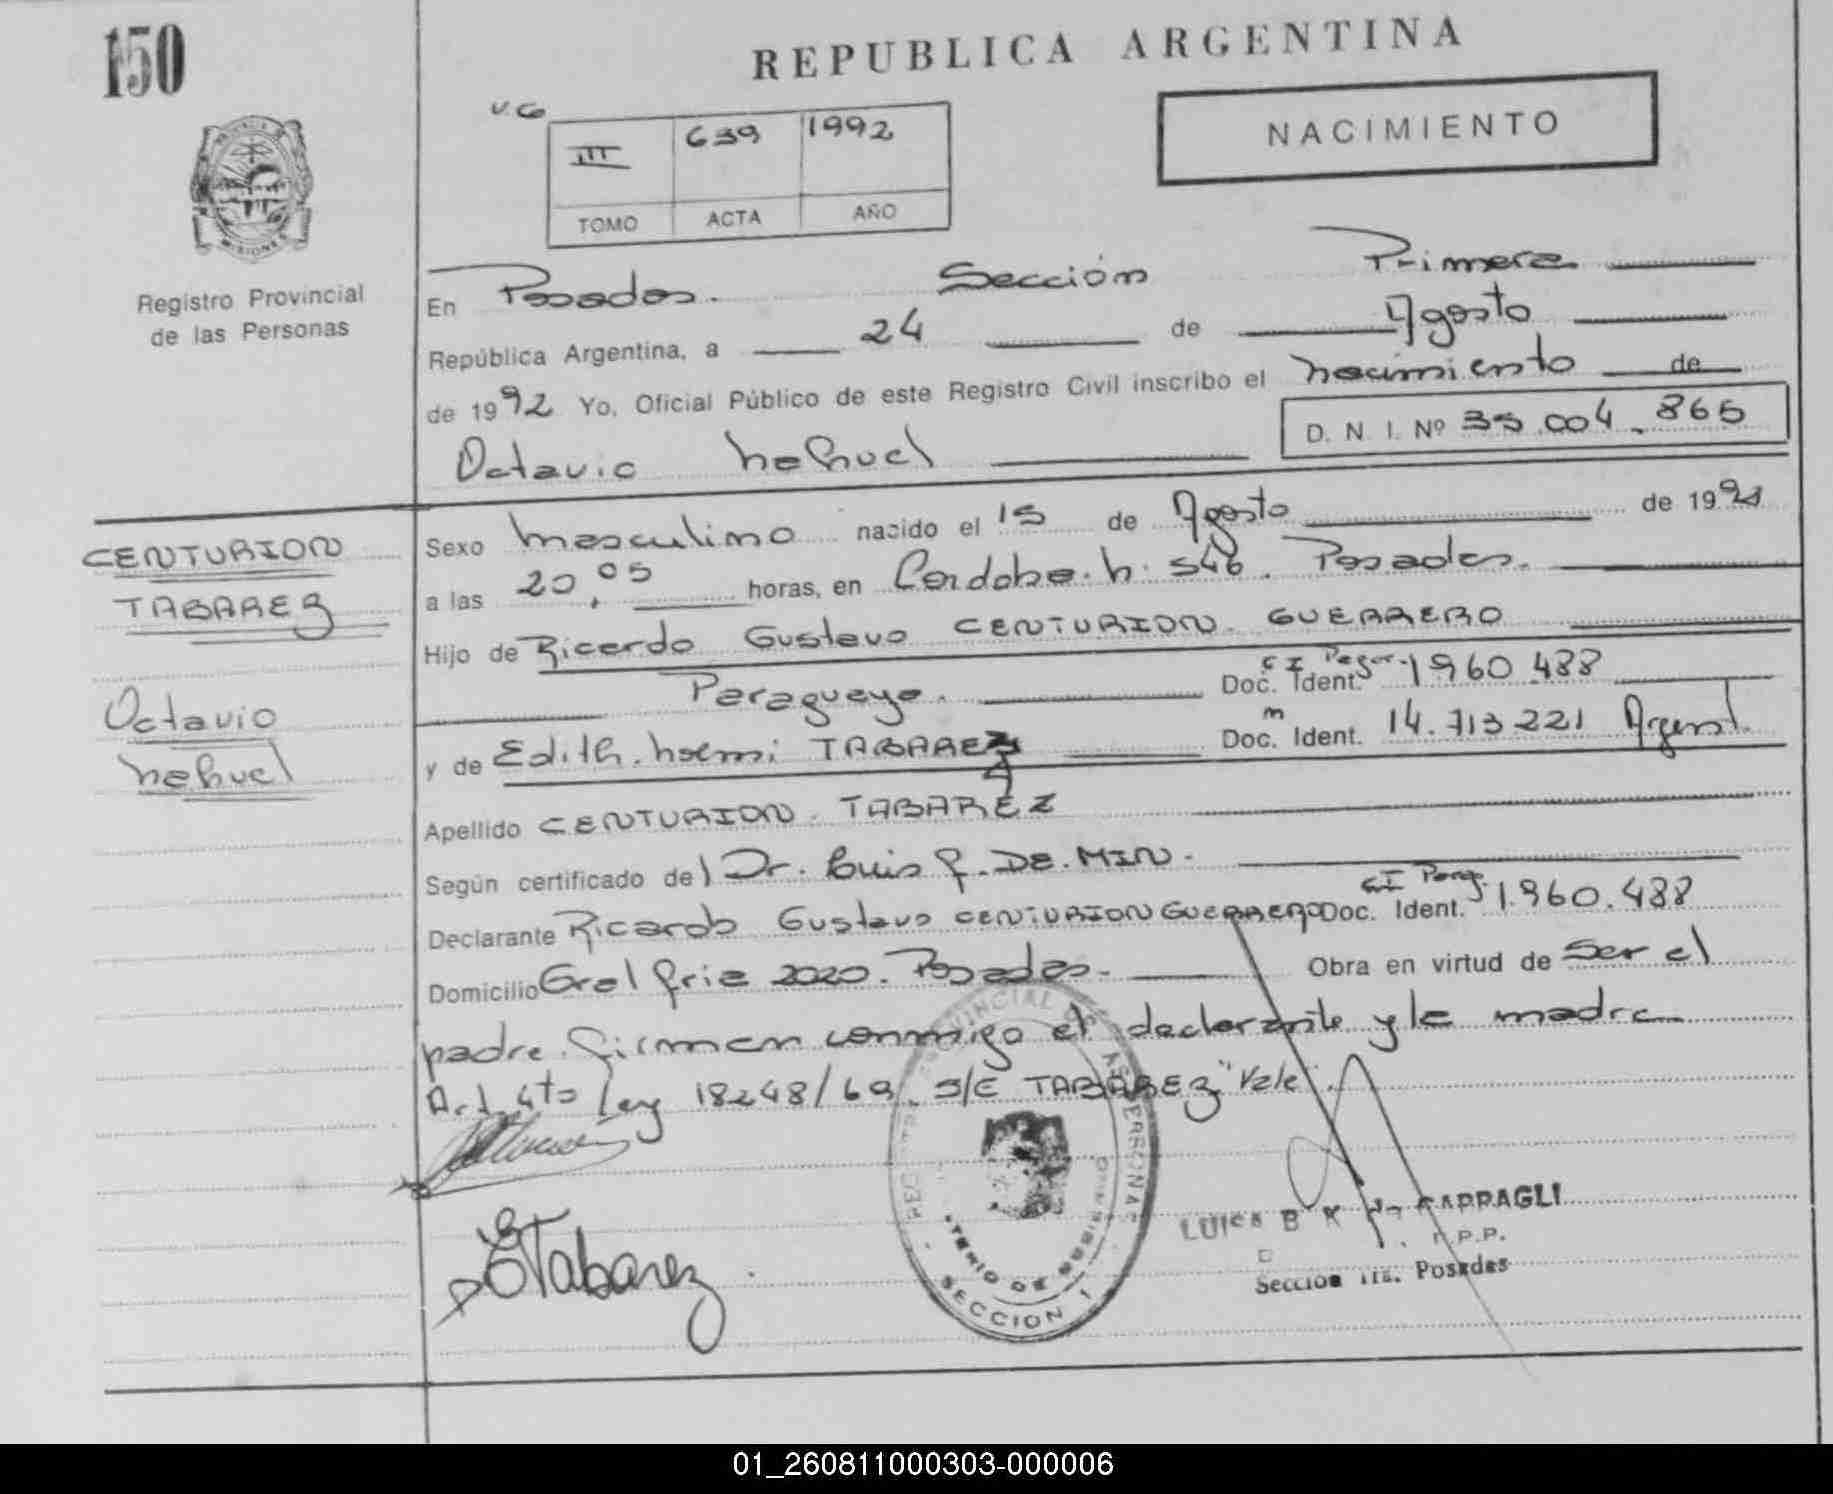 150
REPUBLICA ARGENTINA
NACIMIENTO
V.G
III 639 1992
TOMO ACTA AÑO
Registro Provincial
de las Personas
En Posadas. Sección Primera
República Argentina, a 24 de Agosto
de 1992 Yo, Oficial Público de este Registro Civil inscribo el nacimiento de
D. N. I. Nº 35.004.865
Octavio Nahuel
CENTURION
TABAREZ
Octavio
Nahuel
Sexo masculino nacido el 15 de Agosto de 1992
a las 20,05 horas, en Cordoba. N. 546. Posadas.
Hijo de Ricardo Gustavo CENTURION. GUERRERO
Paraguayo. Doc. Ident. C I Parag. 1960.488
y de Edith. Noemi TABAREZ Doc. Ident. 14.713.221 Argent.
Apellido CENTURION. TABAREZ
Según certificado del Dr. Luis F. DE. MIN.
Declarante Ricardo Gustavo CENTURION GUERRERO Doc. Ident. CI Parag. 1.960.488
Domicilio Gral Frias 2020. Posadas. Obra en virtud de ser el
padre. Firman conmigo el declarante y la madre
Art 4to Ley 18248/69. S/E TABAREZ "Vale".
ETabarez
REGISTRO PROVINCIAL DE LAS PERSONAS
SECCION 1
CARRAGLI
R.P.P.
Sección 1ra. Posadas
01_260811000303-000006